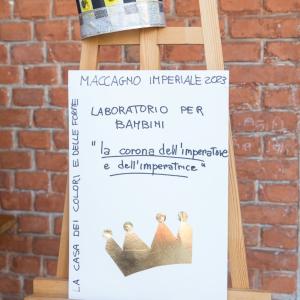 MACCAGNO IMPERIALE 2023
LA CASA DEI COLORI E DELLE FORME
LABORATORIO PER
BAMBINI
"la corona dell'imperatore
e dell'imperatrice"